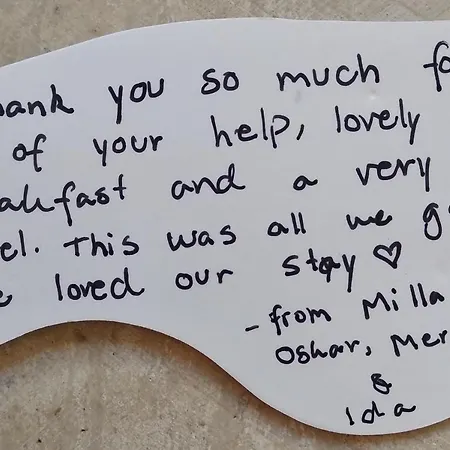 ank you so much fo
of your help, lovely
akfast and a very
el. This was all we g
e loved our stay ♡
- from Milla
Oskar, Mer
&
Ida